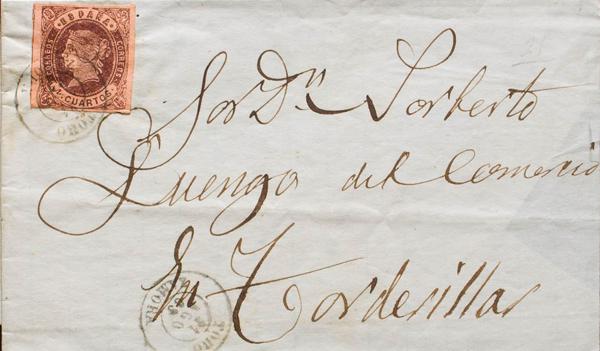 ESPAÑA
CORREOS
CORREOS
4 CUARTOS
TORO
Sor Dn Norberto
Luengo del Comercio
En Tordesillas
TORO